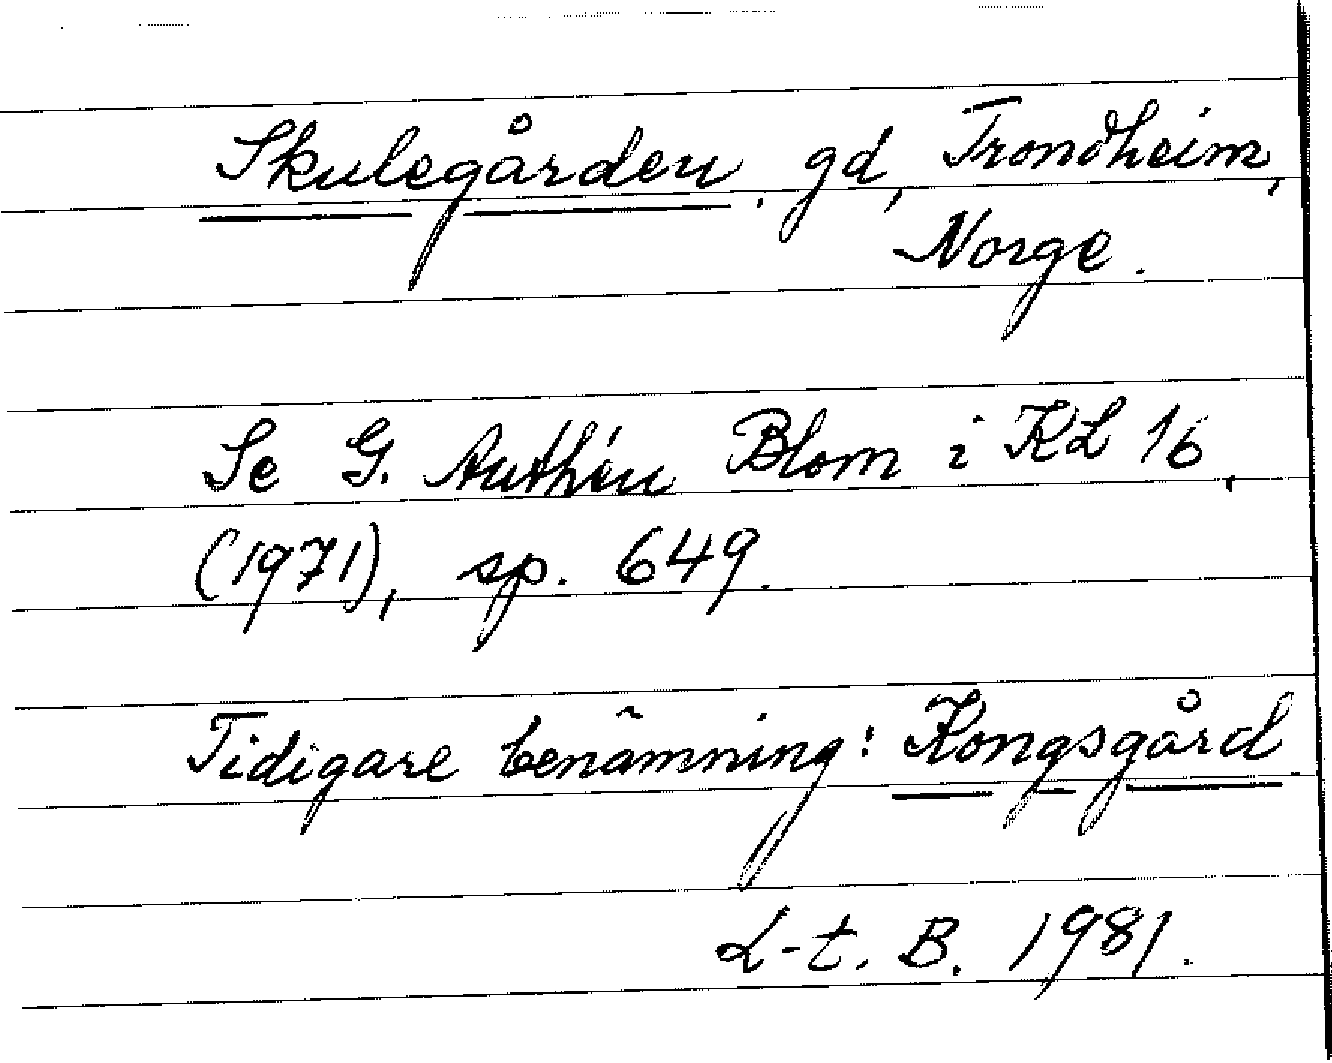 Skulegården, gd, Trondheim,
Norge.
Se G. Authén Blom i KL 16,
(1971), sp. 649.
Tidigare benämning: Kongsgård.
L-t. B. 1981.